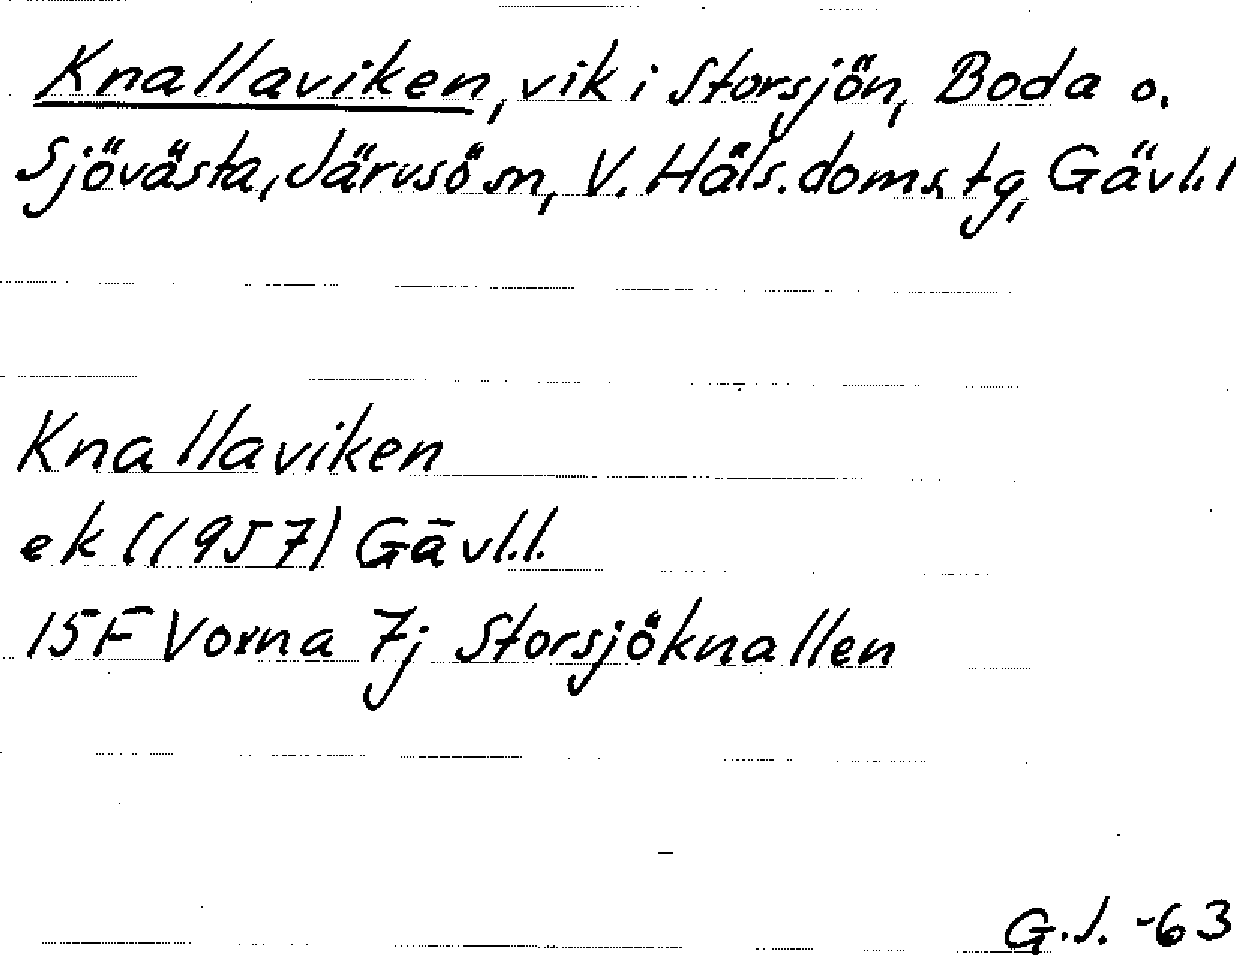 Knallaviken, vik i Storsjön, Boda o.
Sjövästa, Järvsö sn, V. Häls. doms. tg, Gävl. l
Knallaviken
ek (1957) Gävl.l.
15F Voxna 7j Storsjöknallen
G.J. -63